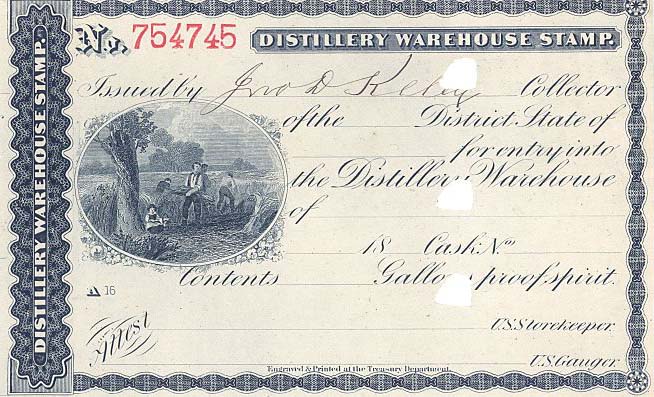 DISTILLERY WAREHOUSE STAMP.
No. 754745 DISTILLERY WAREHOUSE STAMP.
Issued by Jno D Kelley Collector
of the District, State of
for entry into
the Distillery Warehouse
of
18 Cask No
Contents Gallons proof spirit.
A 16
Attest
U.S. Storekeeper
U.S. Gauger.
Engraved & Printed at the Treasury Department.